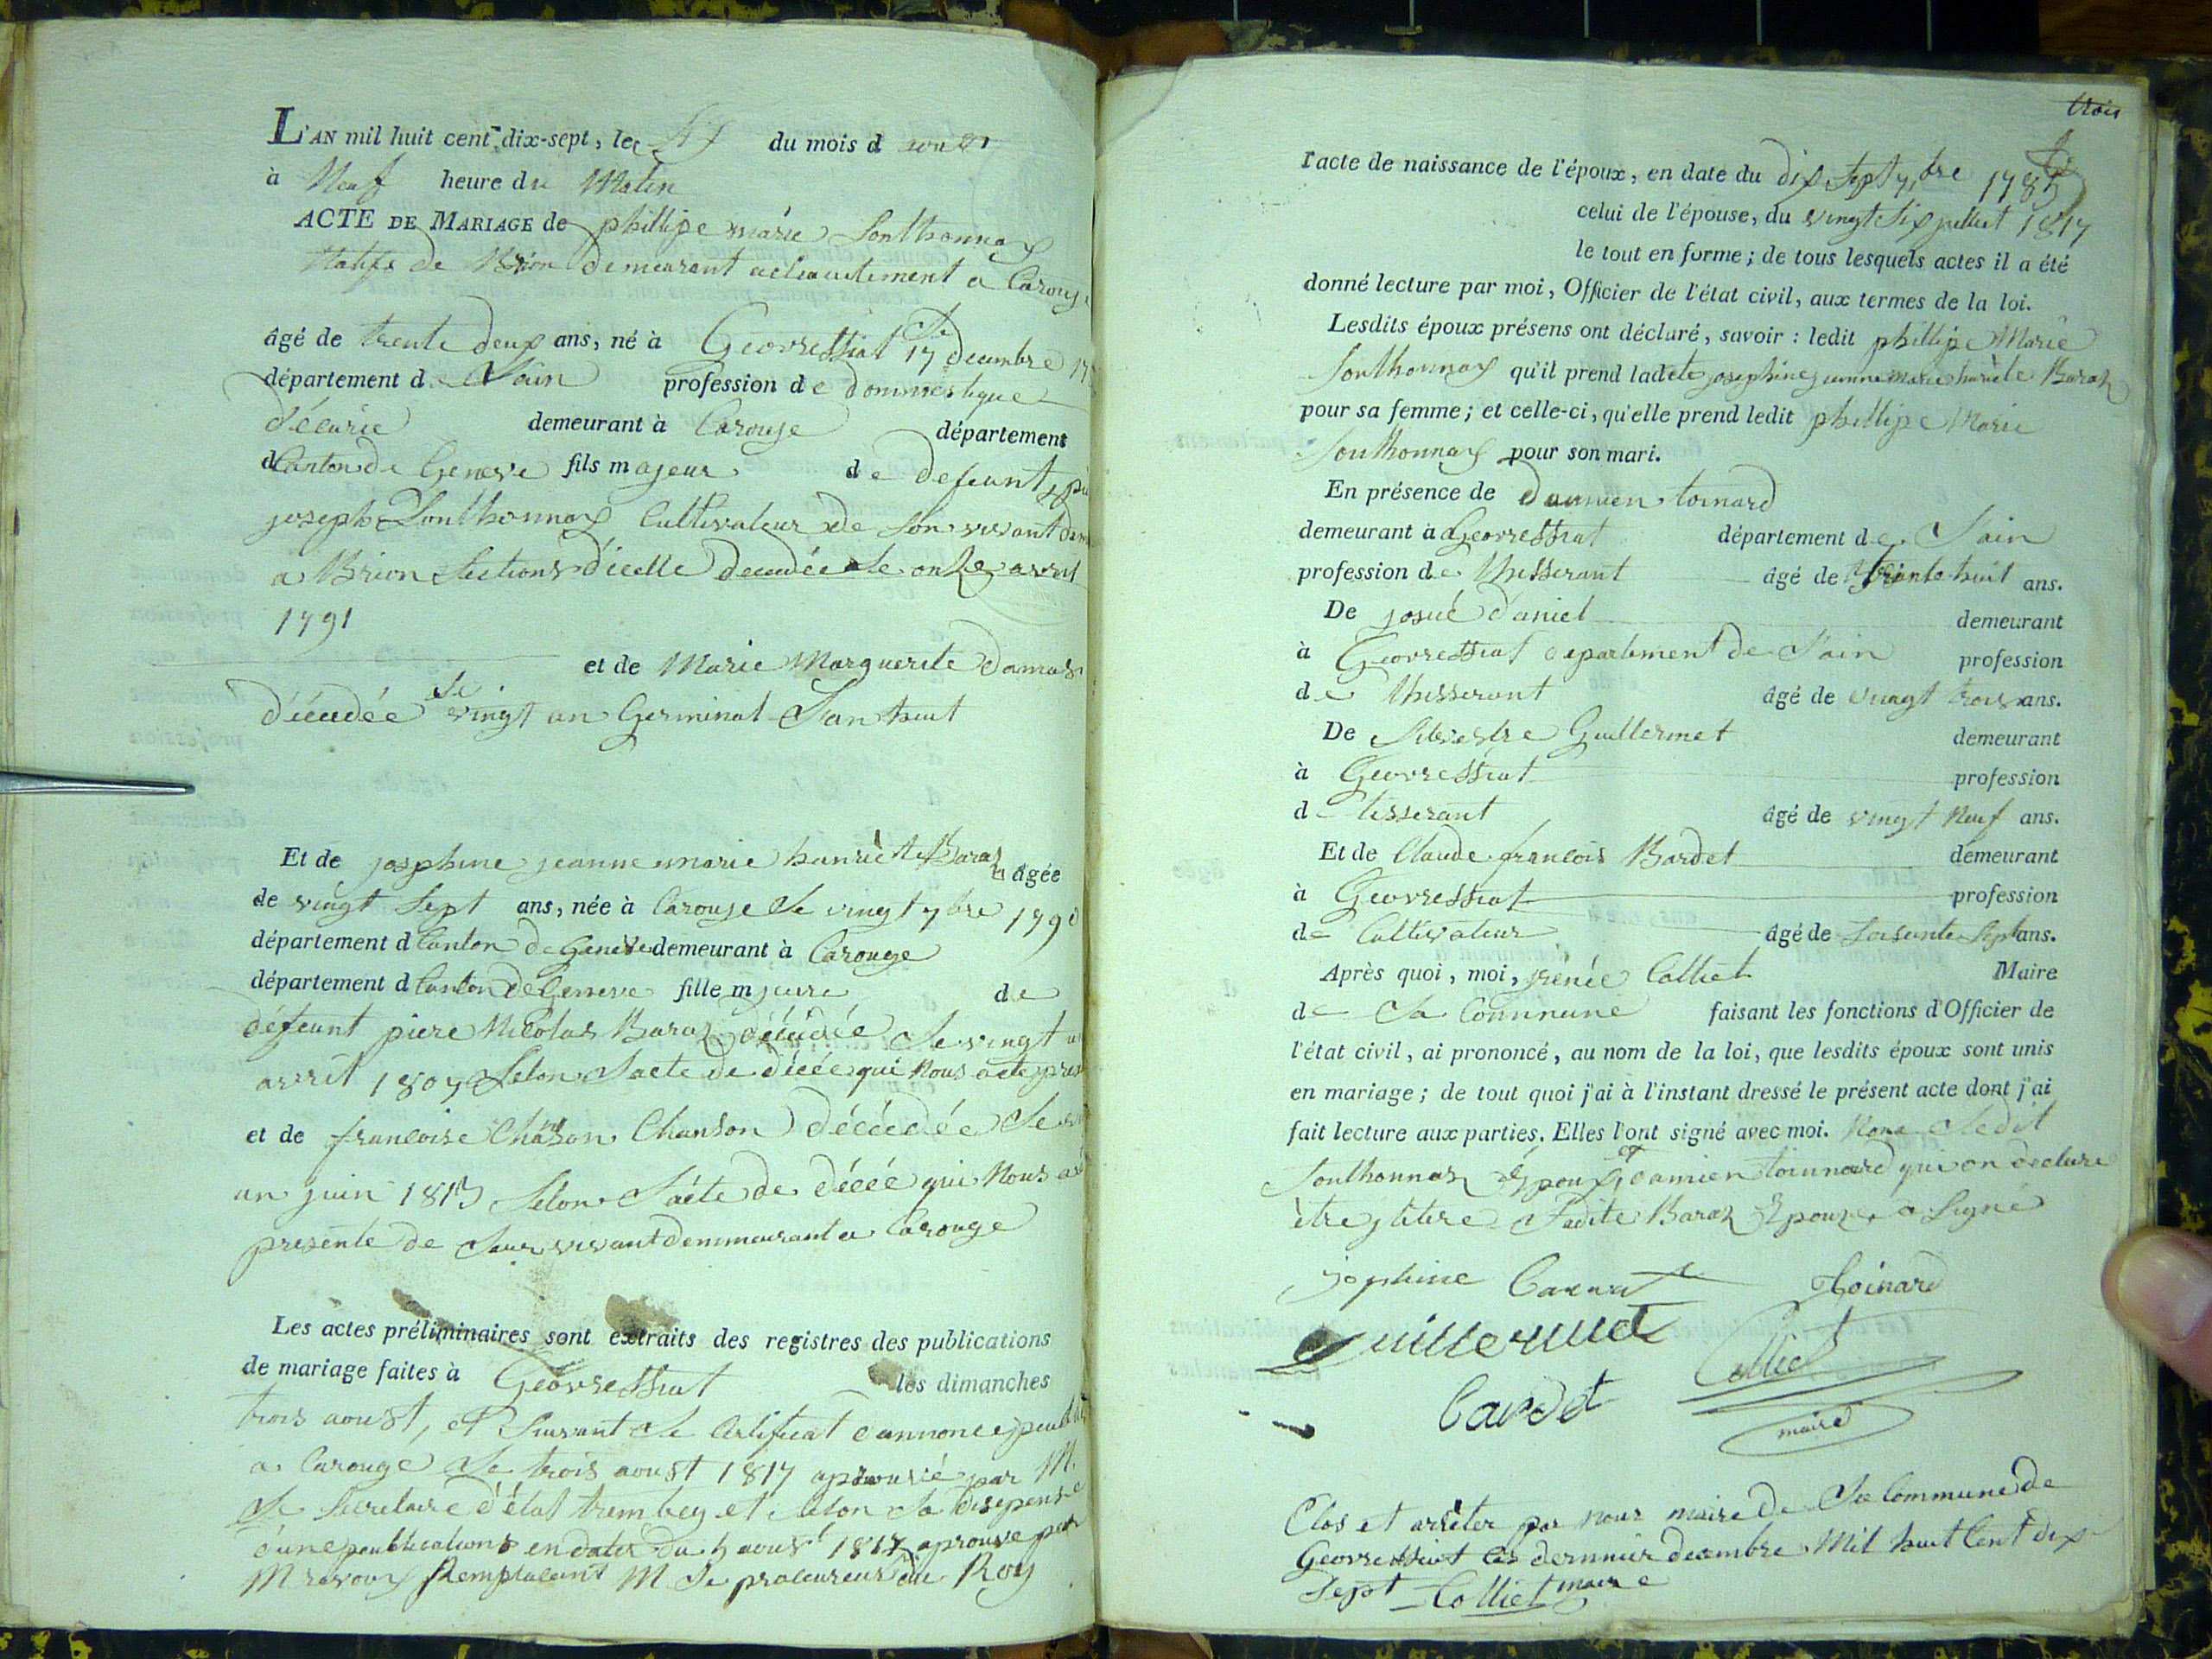 L'AN mil huit cent dix-sept, le du mois d
à Neuf heure du Matin
ACTE DE MARIAGE de phillipe marie Sonthonnax
Natife de Brion demeurant actuaulement a Carouge
âgé de trente deux ans, né à Geovressiat le 17 decembre
département de L'ain profession de dommestique
d'écurie demeurant à Carouge département
d Canton de Geneve fils majeur de defeunt
joseph Sonthonnax Cultivateur de son vivant
a Brion Sections d'icelle decedée le onze avril
1791
et de Marie Marguerite Damas
décédée le vingt un Germinal L'an huit
Et de josphine jeanne marie hanriette Baraz âgée
de vingt Sept ans, née à Carouge le vingt 7bre 1790
département d Canton de Geneve demeurant à Carouge
département d Canton de Genneve fille mjeure de
défeunt piere Nicolas Baraz décédée le vingt
avril 1809 Selon L'acte de décée qui Nous
et de francoise Chanson décédée le
un juin 1813 Selon L'aête de décée qui Nous
presente de Leur vivant demmeurant a Carouge
Les actes préliminaires sont extraits des registres des publications
de mariage faites à Geovressiat les dimanches
trois aoust, et Suivant le Certificat d'annonce
a Carouge le trois aoust 1817 par M.
le Secretaire d'état trembley et Selon La disepense
d'une publications en date du 5 aoust 1817 aprouve par
M Remplacent M le procureur du Roy
trois
l'acte de naissance de l'époux, en date du dix Sept 7bre 1785
celui de l'épouse, du vingt Six juillet 1817
le tout en forme; de tous lesquels actes il a été
donné lecture par moi, Officier de l'état civil, aux termes de la loi.
Lesdits époux présens ont déclaré, savoir : ledit phillipe Marie
Sonthonnax qu'il prend ladete josephine jeanne marie hariete Baraz
pour sa femme; et celle-ci, qu'elle prend ledit phillipe Marie
Sonthonnax pour son mari.
En présence de Damien toinard
demeurant à Geovressiat département de L'ain
profession de thisserant âgé de trante huit ans.
De josué Daniel demeurant
à Geovressiat departement de L'ain profession
de thisserant âgé de vingt trois ans.
De Silvestre Guillermet demeurant
à Geovressiat profession
de tisserant âgé de vingt Neuf ans.
Et de Claude francois Bardet demeurant
à Geovressiat profession
de Cultivateur âgé de Soisente Sept ans.
Après quoi, moi, irénée Colliet Maire
de La Commune faisant les fonctions d'Officier de
l'état civil, ai prononcé, au nom de la loi, que lesdits époux sont unis
en mariage; de tout quoi j'ai à l'instant dressé le présent acte dont j'ai
fait lecture aux parties. Elles l'ont signé avec moi. Ledit
Sonthonnax Epoux et damien toinnard qui on declare
être La dite Baraz Epouze a Signé
josphine Toinard
Guillermet Colliet
Bardet maire
Clos et arrêter par nous maire de La Commune de
Geovressiat le dernnier decembre Mil huit Cent dix
Sept Colliet maire